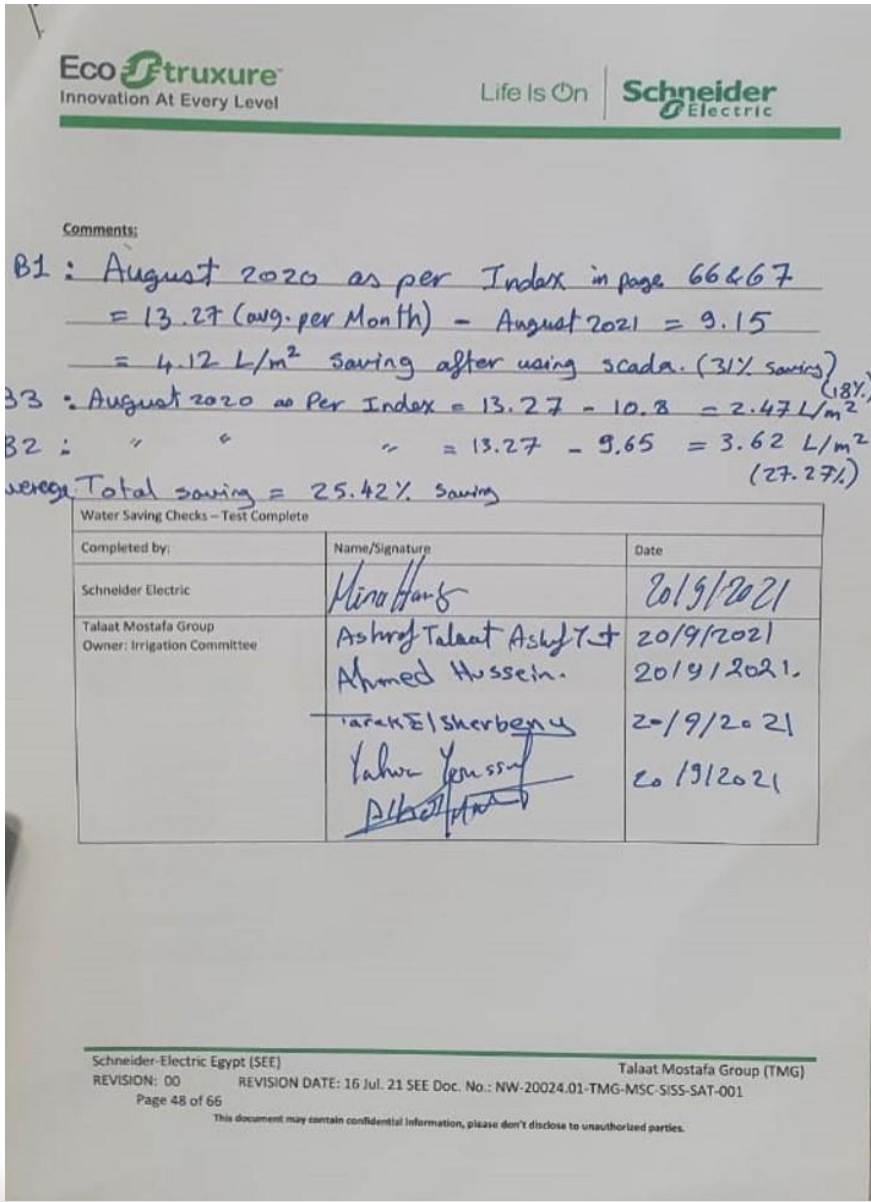 EcoStruxure™
Innovation At Every Level
Life Is On
Schneider
Electric
Comments:
B1 : August 2020 as per Index in page 66&67
= 13.27 (avg. per Month) - August 2021 = 9.15
= 4.12 L/m² saving after using scada. (31% saving)
B3 : August 2020 as Per Index = 13.27 - 10.8 = 2.47 L/m² (18%)
B2 : " " " = 13.27 - 9.65 = 3.62 L/m²
(27.27%)
verege Total saving = 25.42% Saving
Water Saving Checks – Test Complete
Completed by: Name/Signature Date
Schneider Electric Mina 20/9/2021
Talaat Mostafa Group
Owner: Irrigation Committee
Ashrof Talaat 20/9/2021
Ahmed Hussein. 20/9/2021.
Tarek El Sherbeny 20/9/2021
Yahia Youssef 20/9/2021
Schneider-Electric Egypt (SEE) Talaat Mostafa Group (TMG)
REVISION: 00 REVISION DATE: 16 Jul. 21 SEE Doc. No.: NW-20024.01-TMG-MSC-SISS-SAT-001
Page 48 of 66
This document may contain confidential information, please don't disclose to unauthorized parties.